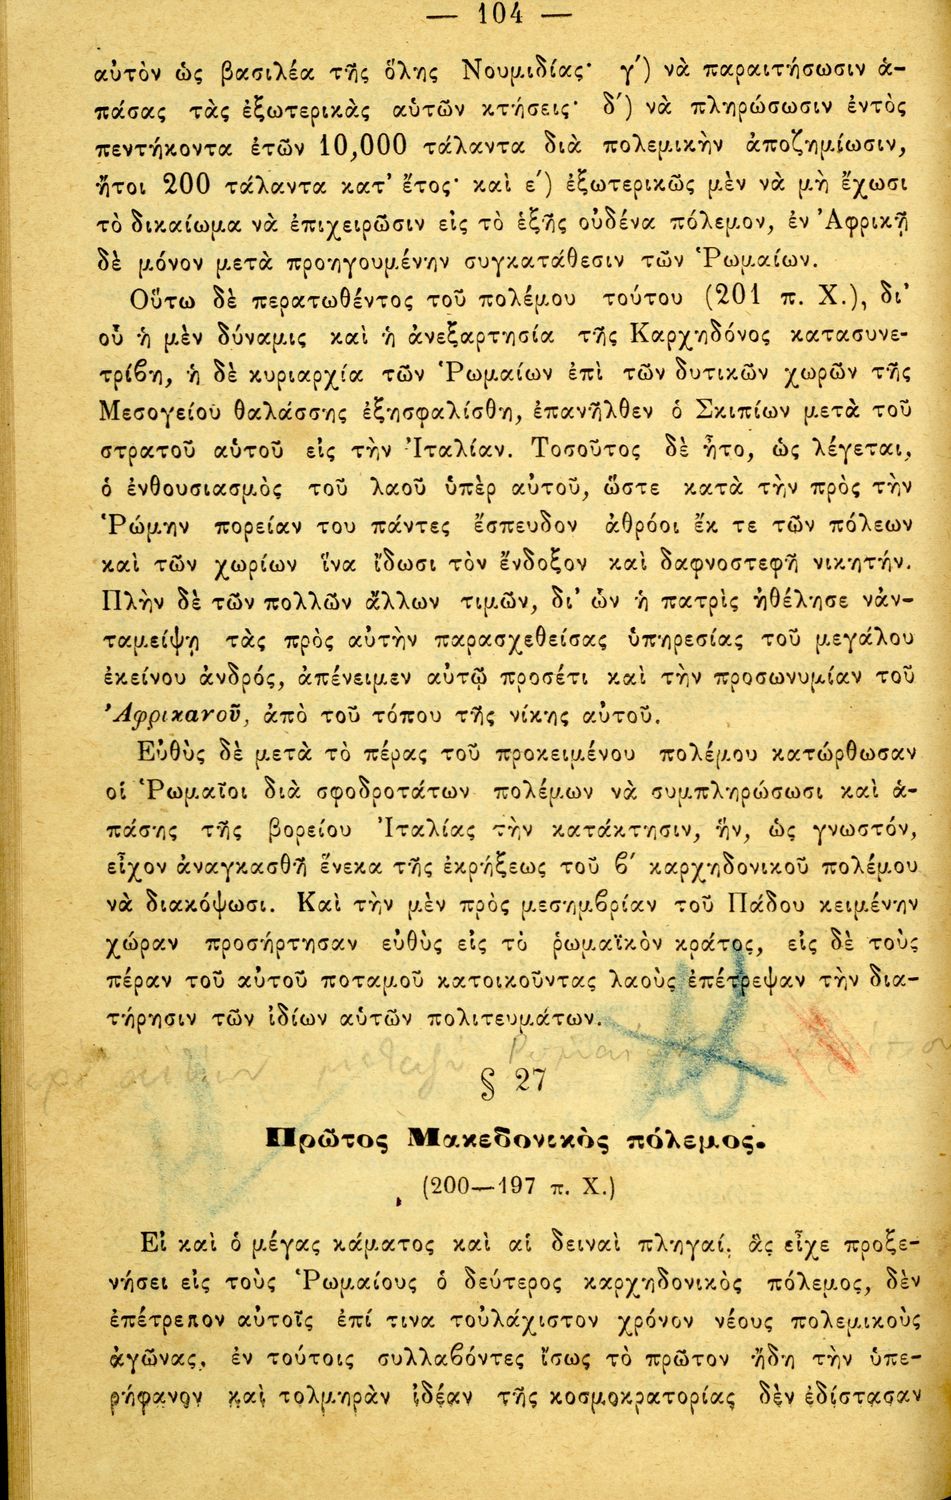 — 104 —
αὐτὸν ὡς βασιλέα τῆς ὅλης Νουμιδίας· γ΄) νὰ παραιτήσωσιν ἁ-
πάσας τὰς ἐξωτερικὰς αὑτῶν κτήσεις· δ΄) νὰ πληρώσωσιν ἐντὸς
πεντήκοντα ἐτῶν 10,000 τάλαντα διὰ πολεμικὴν ἀποζημίωσιν,
ἤτοι 200 τάλαντα κατ' ἔτος· καὶ ε΄) ἐξωτερικῶς μὲν νὰ μὴ ἔχωσι
τὸ δικαίωμα νὰ ἐπιχειρῶσιν εἰς τὸ ἑξῆς οὐδένα πόλεμον, ἐν Ἀφρικῇ
δὲ μόνον μετὰ προηγουμένην συγκατάθεσιν τῶν Ῥωμαίων.
Οὕτω δὲ περατωθέντος τοῦ πολέμου τούτου (201 π. Χ.), δι'
οὗ ἡ μὲν δύναμις καὶ ἡ ἀνεξαρτησία τῆς Καρχηδόνος κατασυνε-
τρίβη, ἡ δὲ κυριαρχία τῶν Ῥωμαίων ἐπὶ τῶν δυτικῶν χωρῶν τῆς
Μεσογείου θαλάσσης ἐξησφαλίσθη, ἐπανῆλθεν ὁ Σκιπίων μετὰ τοῦ
στρατοῦ αὑτοῦ εἰς τὴν Ἰταλίαν. Τοσοῦτος δὲ ἦτο, ὡς λέγεται,
ὁ ἐνθουσιασμὸς τοῦ λαοῦ ὑπὲρ αὐτοῦ, ὥστε κατὰ τὴν πρὸς τὴν
Ῥώμην πορείαν του πάντες ἔσπευδον ἀθρόοι ἔκ τε τῶν πόλεων
καὶ τῶν χωρίων ἵνα ἴδωσι τὸν ἔνδοξον καὶ δαφνοστεφῆ νικητήν.
Πλὴν δὲ τῶν πολλῶν ἄλλων τιμῶν, δι' ὧν ἡ πατρὶς ἠθέλησε νἀν-
ταμείψῃ τὰς πρὸς αὐτὴν παρασχεθείσας ὑπηρεσίας τοῦ μεγάλου
ἐκείνου ἀνδρός, ἀπένειμεν αὐτῷ προσέτι καὶ τὴν προσωνυμίαν τοῦ
Ἀφρικανοῦ, ἀπὸ τοῦ τόπου τῆς νίκης αὐτοῦ.
Εὐθὺς δὲ μετὰ τὸ πέρας τοῦ προκειμένου πολέμου κατώρθωσαν
οἱ Ῥωμαῖοι διὰ σφοδροτάτων πολέμων νὰ συμπληρώσωσι καὶ ἁ-
πάσης τῆς βορείου Ἰταλίας τὴν κατάκτησιν, ἥν, ὡς γνωστόν,
εἶχον ἀναγκασθῆ ἕνεκα τῆς ἐκρήξεως τοῦ β΄ καρχηδονικοῦ πολέμου
νὰ διακόψωσι. Καὶ τὴν μὲν πρὸς μεσημβρίαν τοῦ Πάδου κειμένην
χώραν προσήρτησαν εὐθὺς εἰς τὸ ῥωμαϊκὸν κράτος, εἰς δὲ τοὺς
πέραν τοῦ αὐτοῦ ποταμοῦ κατοικοῦντας λαοὺς ἐπέτρεψαν τὴν δια-
τήρησιν τῶν ἰδίων αὑτῶν πολιτευμάτων.
μεταξὺ Ῥώμης
§ 27
Πρῶτος Μακεδονικὸς πόλεμος.
(200—197 π. Χ.)
Εἰ καὶ ὁ μέγας κάματος καὶ αἱ δειναὶ πληγαί, ἃς εἶχε προξε-
νήσει εἰς τοὺς Ῥωμαίους ὁ δεύτερος καρχηδονικὸς πόλεμος, δὲν
ἐπέτρεπον αὐτοῖς ἐπί τινα τοὐλάχιστον χρόνον νέους πολεμικοὺς
ἀγῶνας, ἐν τούτοις συλλαβόντες ἴσως τὸ πρῶτον ἤδη τὴν ὑπε-
ρήφανον καὶ τολμηρὰν ἰδέαν τῆς κοσμοκρατορίας δὲν ἐδίστασαν